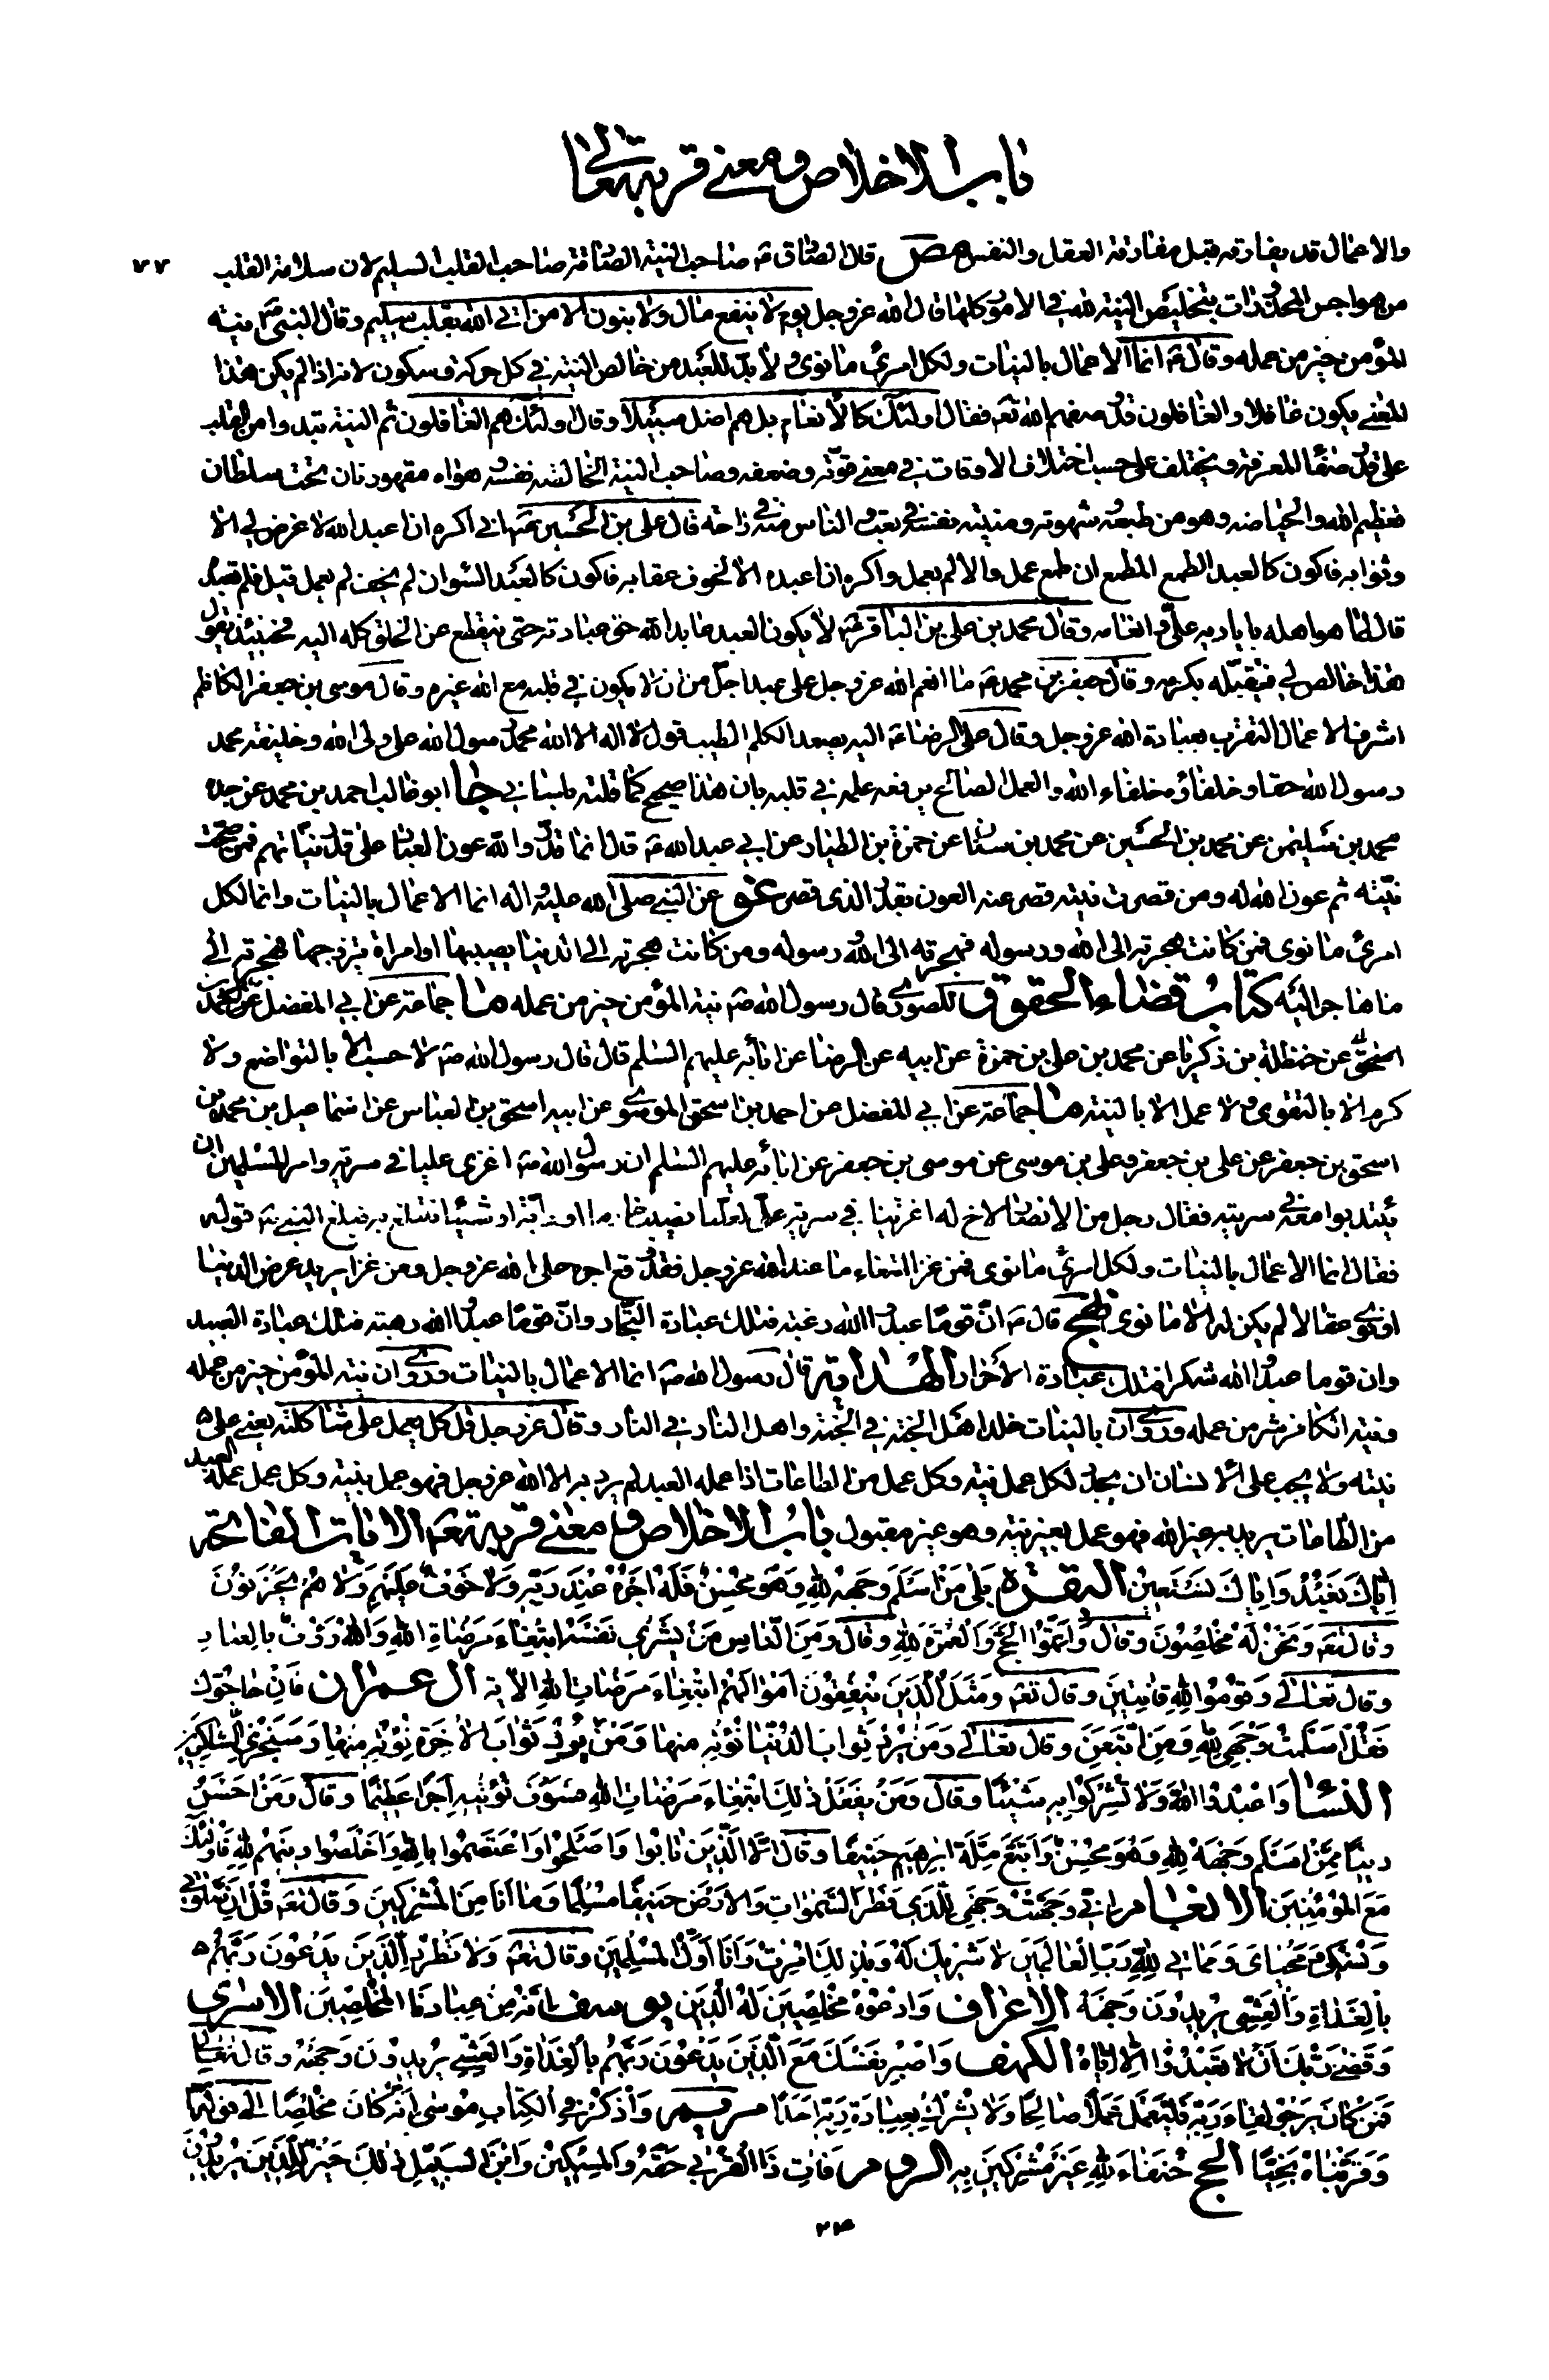 باب الاخلاص و معنے قربہ تعالے
والاعمال قد يفارقه قبل مفارقة العقل والنفس مص قال الصادق ع صاحب النية الصادقة صاحب القلب السليم لان سلامة القلب ٧٧
من هواجس المحذورات بتخليص النية لله في الامور كلها قال الله عز وجل يوم لا ينفع مال ولا بنون الا من اتى الله بقلب سليم وقال النبي ص نية
المؤمن خير من عمله وقال ع انما الاعمال بالنيات ولكل امرئ ما نوى ولا بد للعبد من خالص النية في كل حركة وسكون لانه اذا لم يكن هذا
المعنى يكون غافلا والغافلون قد وصفهم الله تعه فقال اولئك كالانعام بل هم اضل سبيلا وقال اولئك هم الغافلون ثم النية تبدوا من القلب
على قدر صفاء المعرفة ويختلف على حسب اختلاف الاوقات في معنى قوته وضعفه وصاحب النية الخالصة نفسه وهواه مقهورتان تحت سلطان
تعظيم الله والحياء منه وهو من طبعه وشهوته ومنيته نفسه في تعب والناس منه في راحة قال علي بن الحسين ع اني اكره ان اعبد الله لا غرض لي الا
وثوابه فاكون كالعبد الطمع المطمع ان طمع عمل والا لم يعمل واكره ان اعبده الا لخوف عقابه فاكون كالعبد السوء ان لم يخف لم يعمل قيل فلم تعبده
قال لما هو اهله باياديه علي وانعامه وقال محمد بن علي بن الباقر ع لا يكون العبد عابدا لله حق عبادته حتى ينقطع عن الخلق كله اليه فحينئذ يقول
هذا خالص لي فيتقبله بكرمه وقال جعفر بن محمد ع ما انعم الله عز وجل على عبد اجل من ان لا يكون في قلبه مع الله غيره وقال موسى بن جعفر الكاظم
اشرف الاعمال التقرب بعبادة الله عز وجل وقال علي الرضا ع اليه يصعد الكلم الطيب قول لا اله الا الله محمد رسول الله علي ولي الله وخليفة محمد
رسول الله حقا وخلفاؤه خلفاء الله والعمل الصالح يرفعه علمه في قلبه بان هذا صحيح كما قلته بلساني جا ابو غالب احمد بن محمد عن جده
محمد بن سليمن عن محمد بن الحسين عن محمد بن سنان عن حمزة بن الطيار عن ابي عبد الله ع قال انما قدر الله عون العباد على قدر نياتهم فمن صحت
نيته تم عون الله له ومن قصرت نيته قصر عنه العون بقدر الذي قصر غو عن النبي صلى الله عليه واله انما الاعمال بالنيات وانما لكل
امرئ ما نوى فمن كانت هجرته الى الله ورسوله فهجرته الى الله ورسوله ومن كانت هجرته الى الدنيا يصيبها او امراة يتزوجها فهجرته الى
ما هاجر اليه كتاب قضاء الحقوق للصوري قال رسول الله ص نية المؤمن خير من عمله ما جماعة عن ابي المفضل عن
اسحق عن حنظلة بن زكريا عن محمد بن علي بن حمزة عن ابيه عن الرضا عن ابائه عليهم السلم قال قال رسول الله ص لا حسب الا بالتواضع ولا
كرم الا بالتقوى ولا عمل الا بالنية ما جماعة عن ابي المفضل عن احمد بن اسحق الموسوي عن ابيه اسحق بن العباس عن اسماعيل بن محمد بن
اسحق بن جعفر عن علي بن جعفر وعلي بن موسى عن موسى بن جعفر عن ابائه عليهم السلم ان رسول الله ص اغزى عليا في سرية وامر المسلمين ان
ينتدبوا معه في سريته فقال رجل من الانصار لاخ له اغز بنا في سرية علي لعلنا نصيب خادما او دابة او شيئا نتبلغ به فبلغ النبي ص قوله
فقال انما الاعمال بالنيات ولكل امرئ ما نوى فمن غزا ابتغاء ما عند الله عز وجل فقد وقع اجره على الله عز وجل ومن غزا يريد عرض الدنيا
او نوى عقالا لم يكن له الا ما نوى نهج قال ع ان قوما عبدوا الله رغبة فتلك عبادة التجار وان قوما عبدوا الله رهبة فتلك عبادة العبيد
وان قوما عبدوا الله شكرا فتلك عبادة الاحرار الهداية قال رسول الله ص انما الاعمال بالنيات وروي ان نية المؤمن خير من عمله
ونية الكافر شر من عمله وروي ان بالنيات خلد اهل الجنة في الجنة واهل النار في النار وقال عز وجل قل كل يعمل على شاكلته يعني على
نيته ولا يجب على الانسان ان يجدد لكل عمل نية وكل عمل من الطاعات اذا عمله العبد لم يرد به الا الله عز وجل فهو عمل بنية وكل عمل عمله العبد
من الطاعات يريد به غير الله فهو عمل بغير نية وهو غير مقبول باب الاخلاص و معنى قربه تعه الايات الفاتحة
اِيّاكَ نَعْبُدُ وَاِيّاكَ نَسْتَعِينُ البقرة بَلى مَنْ اَسْلَمَ وَجْهَهُ لِلّهِ وَهُوَ مُحْسِنٌ فَلَهُ اَجْرُهُ عِنْدَ رَبِّهِ وَلا خَوْفٌ عَلَيْهِمْ وَلا هُمْ يَحْزَنُونَ
وقال تعه وَنَحْنُ لَهُ مُخْلِصُونَ وقال وَاَتِمُّوا الْحَجَّ وَالْعُمْرَةَ لِلّهِ وقال وَمِنَ النّاسِ مَنْ يَشْرِي نَفْسَهُ ابْتِغاءَ مَرْضاةِ اللهِ وَاللهُ رَؤُفٌ بِالْعِبادِ
وقال تعالى وَقُومُوا لِلّهِ قانِتِينَ وقال تعه وَمَثَلُ الَّذِينَ يُنْفِقُونَ اَمْوالَهُمُ ابْتِغاءَ مَرْضاتِ اللهِ الآية ال عمران فَاِنْ حاجُّوكَ
فَقُلْ اَسْلَمْتُ وَجْهِيَ لِلّهِ وَمَنِ اتَّبَعَنِ وقال تعالى وَمَنْ يُرِدْ ثَوابَ الدُّنْيا نُؤْتِهِ مِنْها وَمَنْ يُرِدْ ثَوابَ الآخِرَةِ نُؤْتِهِ مِنْها وَسَنَجْزِي الشّاكِرِينَ
النساء وَاعْبُدُوا اللهَ وَلا تُشْرِكُوا بِهِ شَيْئًا وقال وَمَنْ يَفْعَلْ ذلِكَ ابْتِغاءَ مَرْضاتِ اللهِ فَسَوْفَ نُؤْتِيهِ اَجْرًا عَظِيمًا وقال وَمَنْ اَحْسَنُ
دِينًا مِمَّنْ اَسْلَمَ وَجْهَهُ لِلّهِ وَهُوَ مُحْسِنٌ وَاتَّبَعَ مِلَّةَ اِبْرهِيمَ حَنِيفًا وقال اِلاَّ الَّذِينَ تابُوا وَاَصْلَحُوا وَاعْتَصَمُوا بِاللهِ وَاَخْلَصُوا دِينَهُمْ لِلّهِ فَاُولئِكَ
مَعَ الْمُؤْمِنِينَ الانعام اِنّي وَجَّهْتُ وَجْهِيَ لِلَّذِي فَطَرَ السَّمواتِ وَالاَرْضَ حَنِيفًا مُسْلِمًا وَما اَنَا مِنَ الْمُشْرِكِينَ وقال تعه قُلْ اِنَّ صَلوتِي
وَنُسُكِي وَمَحْيايَ وَمَماتِي لِلّهِ رَبِّ الْعالَمِينَ لا شَرِيكَ لَهُ وَبِذلِكَ اُمِرْتُ وَاَنَا اَوَّلُ الْمُسْلِمِينَ وقال تعه وَلا تَطْرُدِ الَّذِينَ يَدْعُونَ رَبَّهُمْ
بِالْغَداةِ وَالْعَشِيِّ يُرِيدُونَ وَجْهَهُ الاعراف وَادْعُوهُ مُخْلِصِينَ لَهُ الدِّينَ يوسف اِنَّهُ مِنْ عِبادِنَا الْمُخْلَصِينَ الاسرى
وَقَضى رَبُّكَ اَنْ لا تَعْبُدُوا اِلاّ اِيّاهُ الكهف وَاصْبِرْ نَفْسَكَ مَعَ الَّذِينَ يَدْعُونَ رَبَّهُمْ بِالْغَداةِ وَالْعَشِيِّ يُرِيدُونَ وَجْهَهُ وقال تعالى
فَمَنْ كانَ يَرْجُو لِقاءَ رَبِّهِ فَلْيَعْمَلْ عَمَلاً صالِحًا وَلا يُشْرِكْ بِعِبادَةِ رَبِّهِ اَحَدًا مريم وَاذْكُرْ فِي الْكِتابِ مُوسى اِنَّهُ كانَ مُخْلَصًا الى قوله
وَقَرَّبْناهُ نَجِيًّا الحج حُنَفاءَ لِلّهِ غَيْرَ مُشْرِكِينَ بِهِ الروم فَآتِ ذَا الْقُرْبى حَقَّهُ وَالْمِسْكِينَ وَابْنَ السَّبِيلِ ذلِكَ خَيْرٌ لِلَّذِينَ يُرِيدُونَ
٢٤